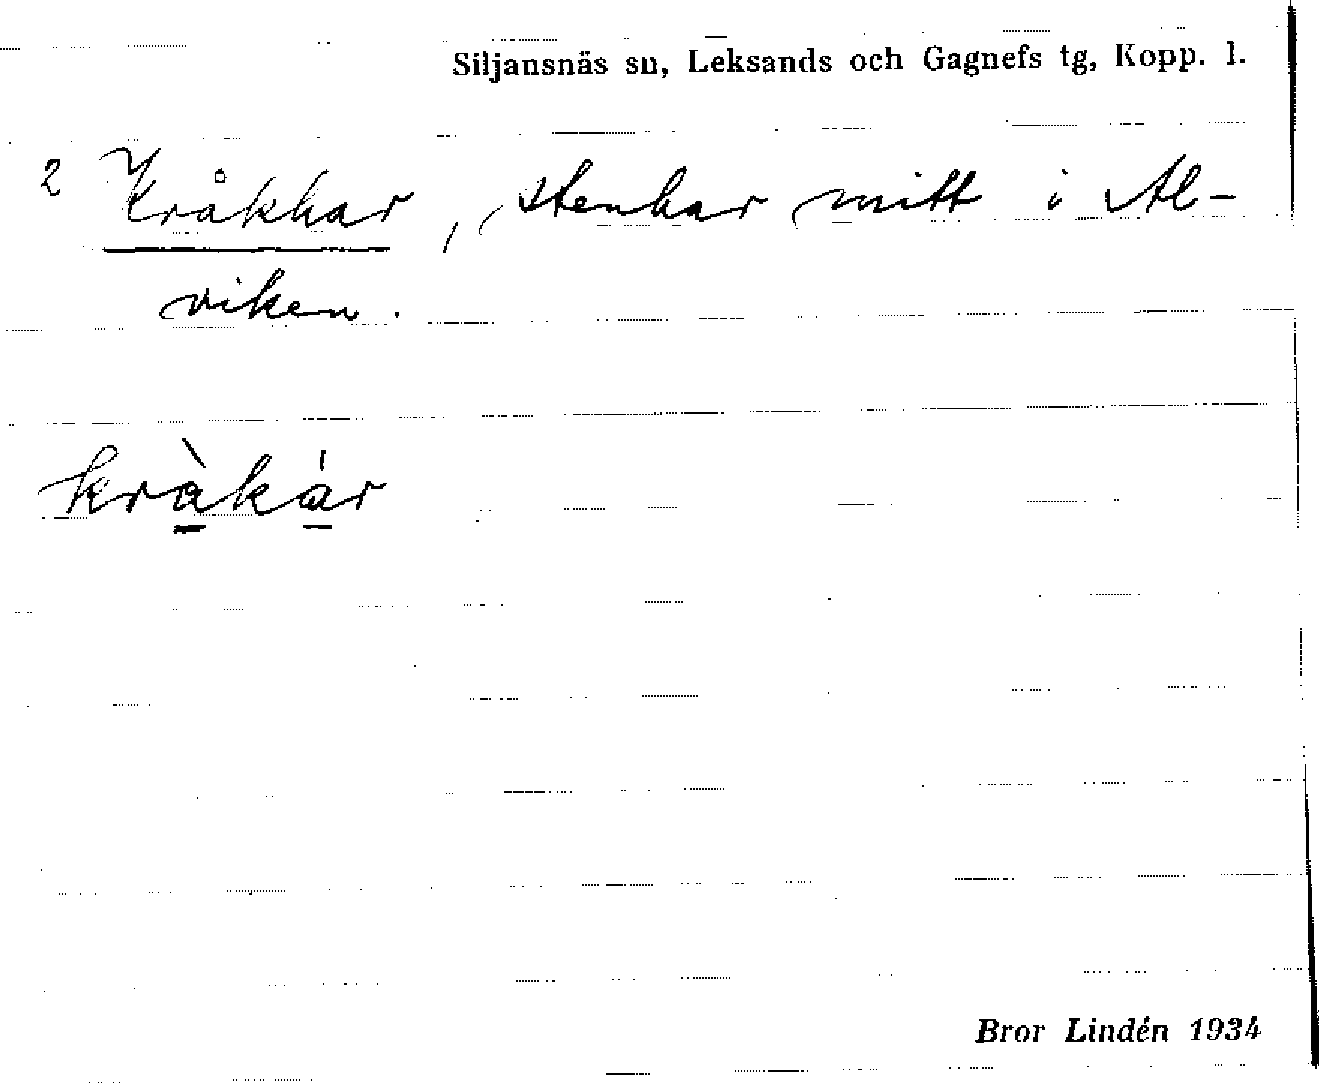 Siljansnäs sn, Leksands och Gagnefs tg, Kopp. l.
2 Kråkhar, stenhar mitt i Al-
viken.
kràkár
Bror Lindén 1934